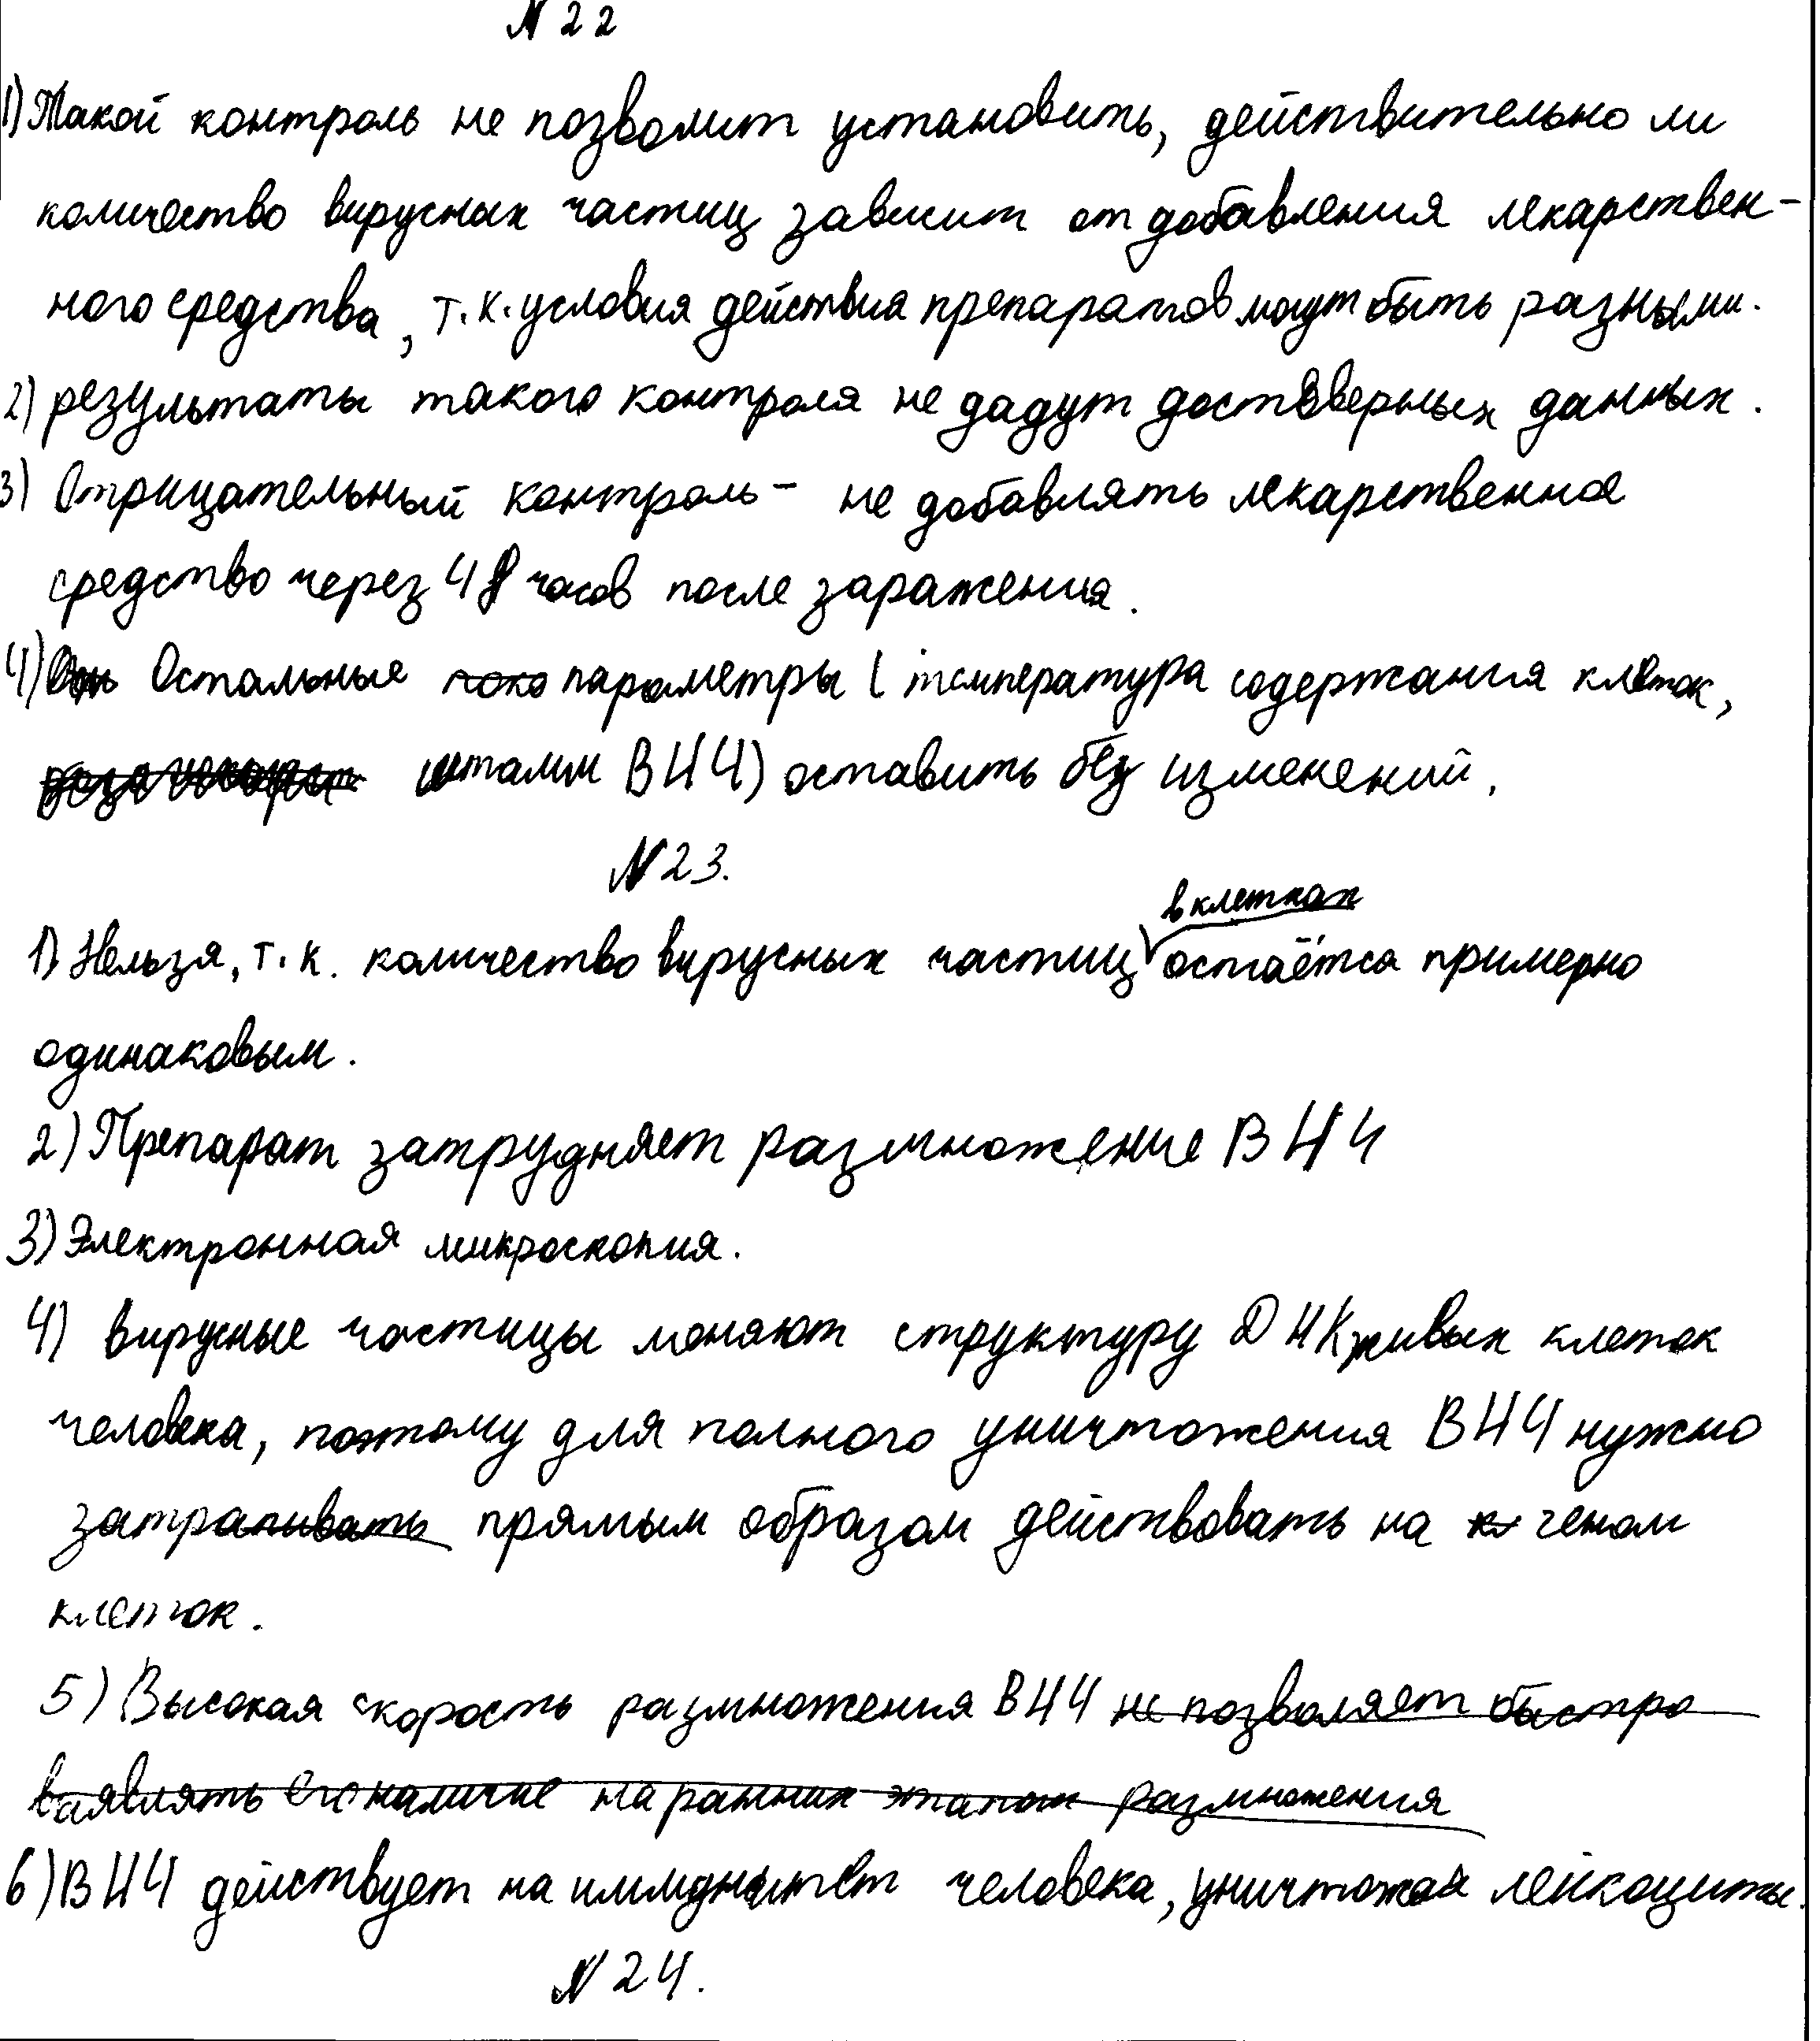 N 22
1) Такой контроль не позволит установить, действительно ли
количество вирусных частиц зависит от добавления лекарствен-
ного средства, т.к. условия действия препаратов могут быть разными.
2) результаты такого контроля не дадут достоверных данных.
3) Отрицательный контроль - не добавлять лекарственное
средство через 48 часов после заражения.
4) Остальные параметры ( температура содержания клеток,
штамм ВИЧ) оставить без изменений.
N 23.
в клетках
1) Нельзя, т.к. количество вирусных частиц остаётся примерно
одинаковым.
2) Препарат затрудняет размножение ВИЧ
3) Электронная микроскопия.
4) вирусные частицы меняют структуру ДНК живых клеток
человека, поэтому для полного уничтожения ВИЧ нужно
затрапивать прямым образом действовать на геном
клеток.
5) Высокая скорость размножения ВИЧ не позволяет быстро
выявлять его наличие на ранних этапах размножения
6) ВИЧ действует на иммунитет человека, уничтожая лейкоциты.
N 24.